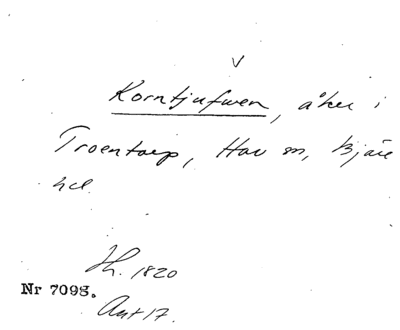 v
Korntjufwen, åker i
Troentorp, Hov sn, Bjäre
hd.
Jh. 1820
Nr 7098.
Akt 17.